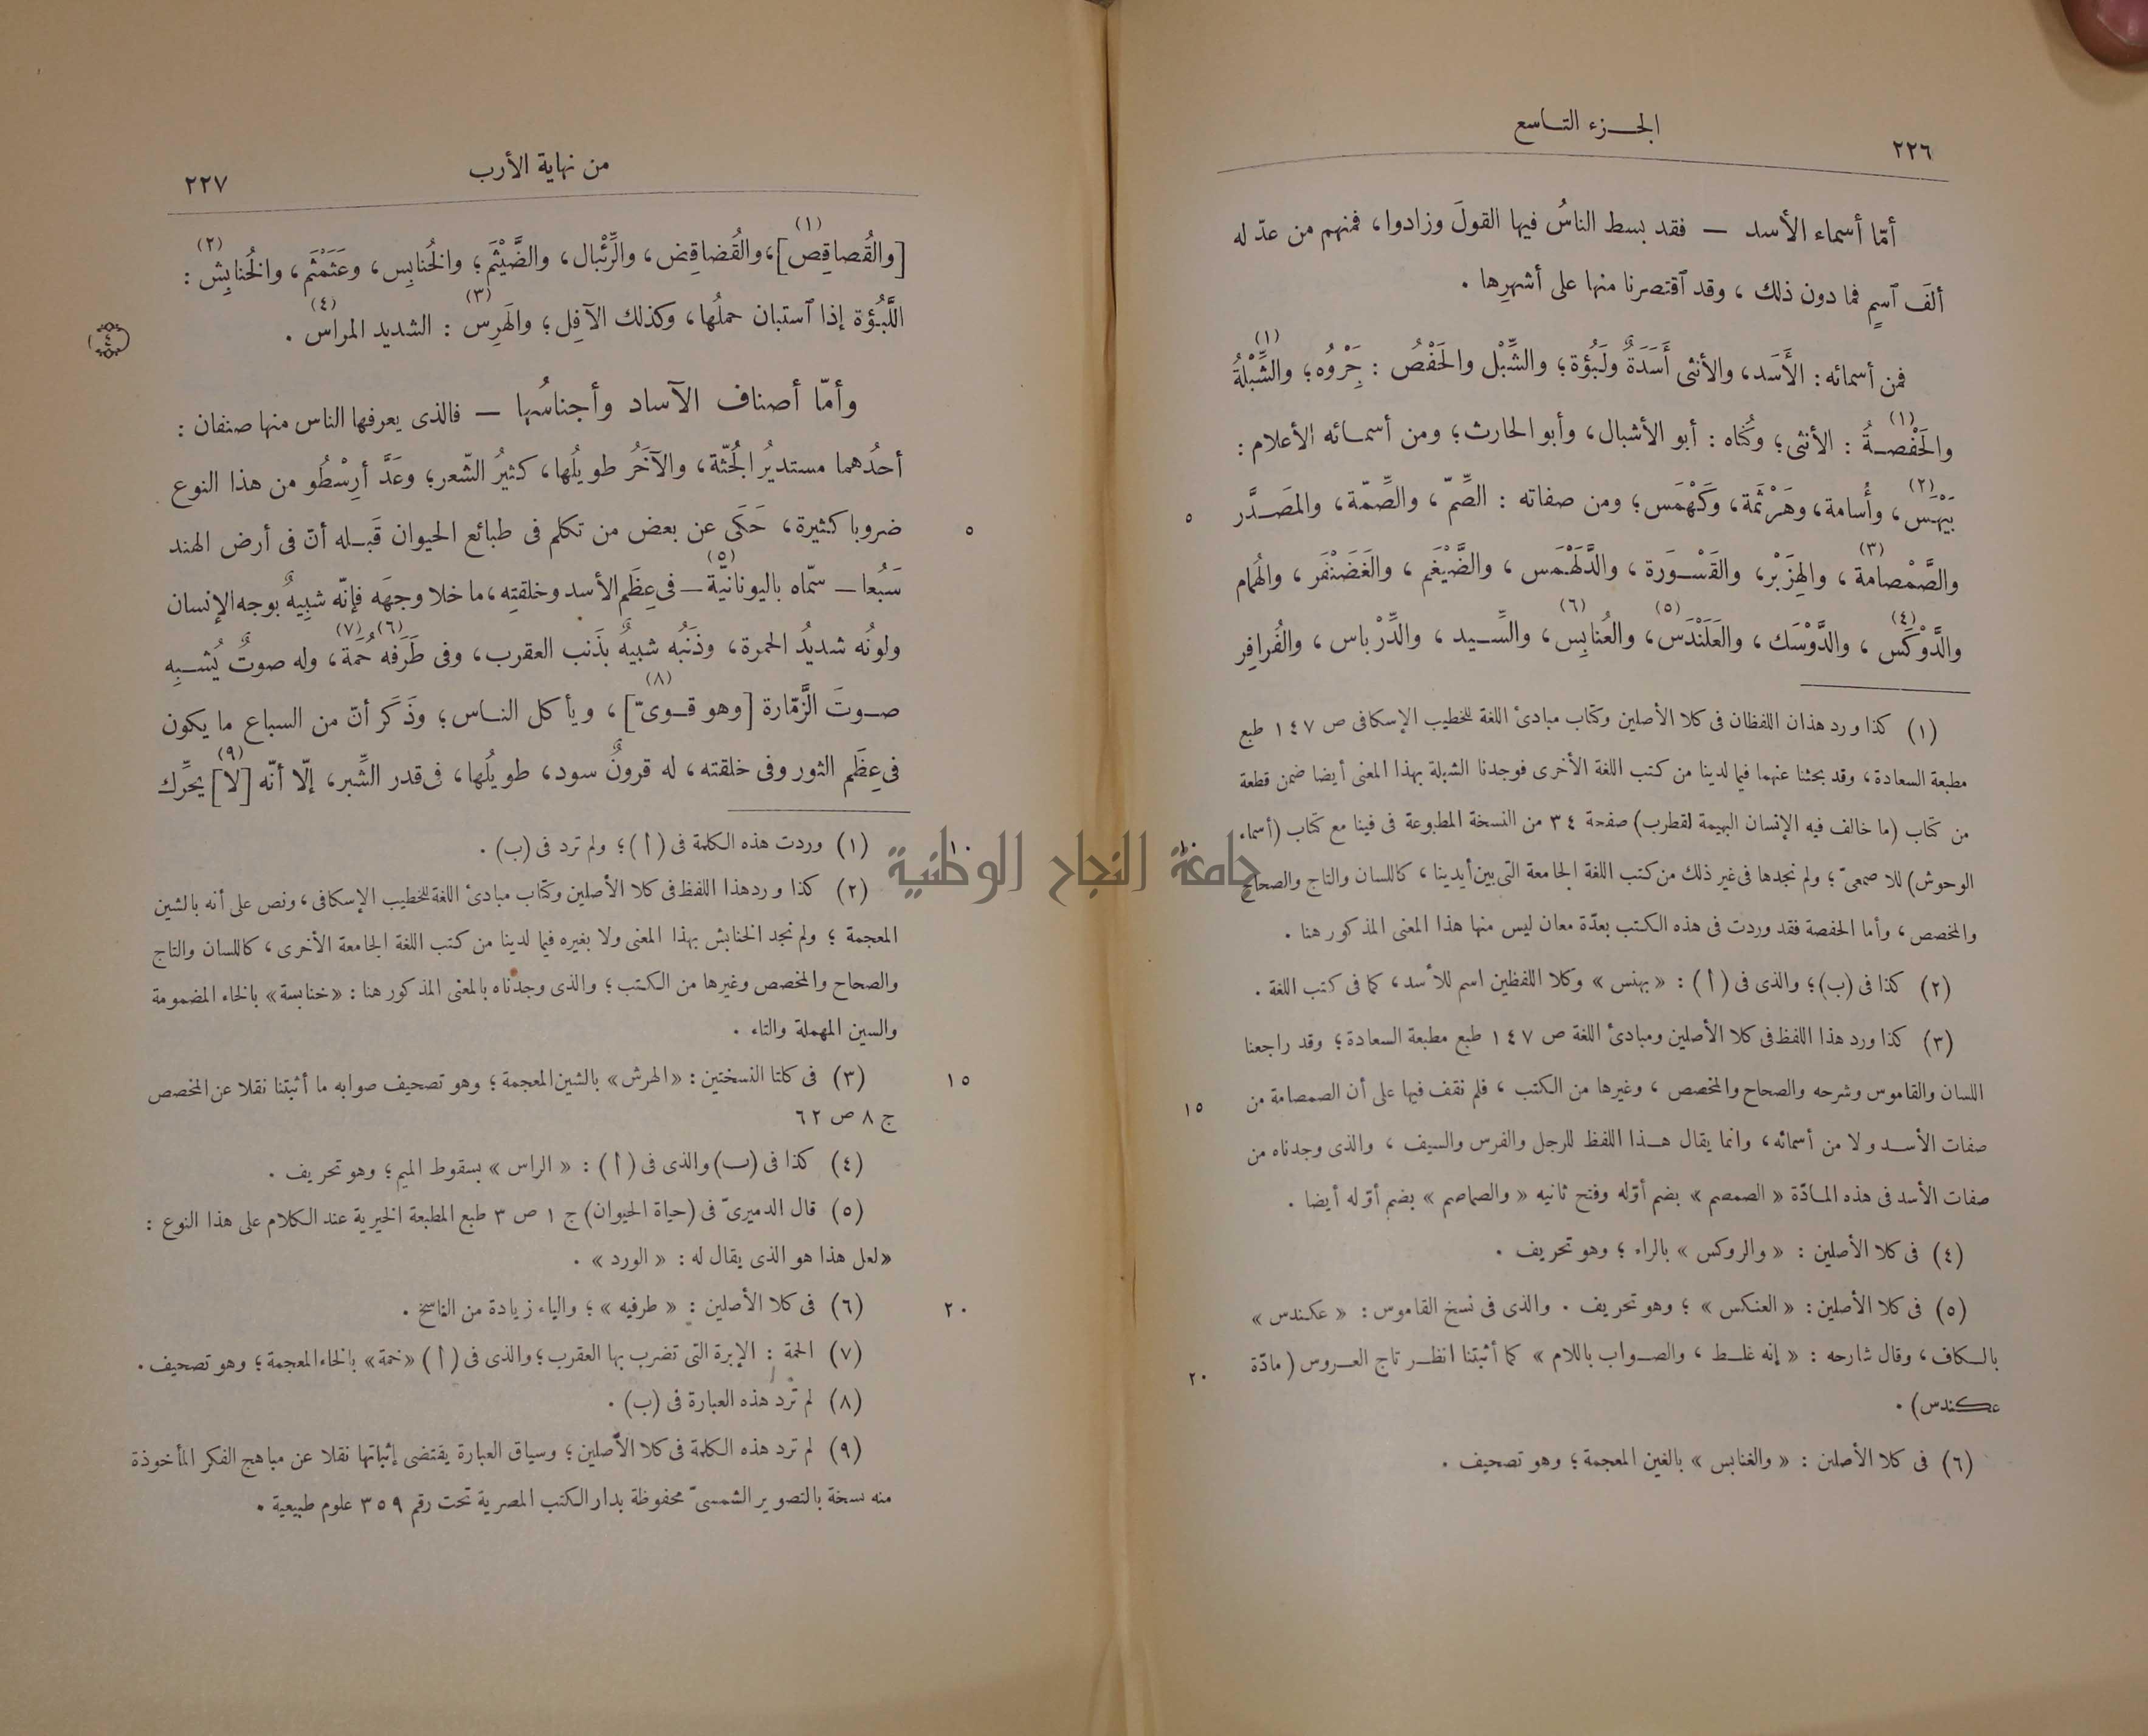 ٢٢٦
الجزء التاسع
أمّا أسماء الأسد — فقد بسط الناسُ فيها القولَ وزادوا، فمنهم من عدّ له
ألفَ ٱسمٍ فما دون ذلك، وقد ٱقتصرنا منها على أشهرِها.
فمن أسمائه: الأَسَد، والأنثى أَسَدَةٌ ولَبُؤة؛ والشِّبْل والحَفْصُ: جَرْوُه؛ والشِّبْلةُ (١)
والحَفْصةُ (١): الأنثى؛ وكُناه: أبو الأشبال، وأبو الحارث؛ ومن أسمائه الأعلام:
بَيْهَس (٢)، وأُسامة، وهَرْثَمة، وكَهْمَس؛ ومن صفاته: الصِّمّ، والصِّمّة، والمصَدَّر
٥
والصَّمْصامة (٣)، والهِزَبْر، والقَسْوَرة، والدَّلَهْمَس، والضَّيْغَم، والغَضَنْفَر، والهُمام
والدَّوْكَس (٤)، والدَّوْسَك، والعَلَنْدَس (٥)، والعُنابِس (٦)، والسِّيد، والدِّرْباس، والفُرافِر
(١) كذا ورد هذان اللفظان فى كلا الأصلين وكتاب مبادئ اللغة للخطيب الإسكافى ص ١٤٧ طبع
مطبعة السعادة، وقد بحثنا عنهما فيما لدينا من كتب اللغة الأخرى فوجدنا الشبلة بهذا المعنى أيضا ضمن قطعة
من كتاب (ما خالف فيه الإنسان البهيمة لقطرب) صفحة ٣٤ من النسخة المطبوعة فى فينا مع كتاب (أسماء
الوحوش) للاصمعىّ؛ ولم نجدها فى غير ذلك من كتب اللغة الجامعة التى بين أيدينا، كاللسان والتاج والصحاح
والمخصص، وأما الحفصة فقد وردت فى هذه الكتب بعدّة معان ليس منها هذا المعنى المذكور هنا.
(٢) كذا فى (ب)؛ والذى فى (أ): «بهنس» وكلا اللفظين اسم للأسد، كما فى كتب اللغة.
(٣) كذا ورد هذا اللفظ فى كلا الأصلين ومبادئ اللغة ص ١٤٧ طبع مطبعة السعادة؛ وقد راجعنا
اللسان والقاموس وشرحه والصحاح والمخصص، وغيرها من الكتب، فلم نقف فيها على أن الصمصامة من
١٥
صفات الأسد ولا من أسمائه، وانما يقال هذا اللفظ للرجل والفرس والسيف، والذى وجدناه من
صفات الأسد فى هذه المادّة «الصمصم» بضم أوّله وفتح ثانيه «والصماصم» بضم أوّله أيضا.
(٤) فى كلا الأصلين: «والروكس» بالراء؛ وهو تحريف.
(٥) فى كلا الأصلين: «العنكس»؛ وهو تحريف. والذى فى نسخ القاموس: «عكندس»
بالكاف، وقال شارحه: «إنه غلط، والصواب باللام» كما أثبتنا انظر تاج العروس (مادّة
٢٠
عكندس).
(٦) فى كلا الأصلين: «والغنابس» بالغين المعجمة؛ وهو تصحيف.
من نهاية الأرب
٢٢٧
[والقُصاقِص] (١)، والقُضاقِض، والرِّئْبال، والضَّيْثَم؛ والخُنابِس، وعَثَمْثَم، والخُنابِش (٢):
اللَّبُؤة إذا ٱستبان حملُها، وكذلك الآفِل؛ والهَرِس (٣): الشديد المراس (٤).
٤
وأمّا أصناف الآساد وأجناسُها — فالذى يعرفها الناس منها صنفان:
أحدُهما مستديرُ الجُثّة، والآخَرُ طويلُها، كثيرُ الشّعر؛ وعَدَّ أرِسْطُو من هذا النوع
ضروبا كثيرة، حَكَى عن بعض من تكلم فى طبائع الحيوان قَبله أنّ فى أرض الهند
٥
سَبُعا — سمّاه باليونانيّة (٥) — فى عِظَم الأسد وخلقتِه، ما خلا وجهَه فإنّه شبِيهٌ بوجه الإنسان
ولونُه شديدُ الحمرة، وذَنَبُه شبيهٌ بذَنب العقرب، وفى طَرَفه (٦) حُمَة (٧)، وله صوتٌ يُشبِه
صوتَ الزَّمّارة [وهو قوىّ] (٨)، ويأكل الناس؛ وذَكَر أنّ من السباع ما يكون
فى عِظَم الثور وفى خلقته، له قرونٌ سود، طويلُها، فى قدر الشِّبر، إلّا أنّه [لا] (٩) يحرِّك
(١) وردت هذه الكلمة فى (أ)؛ ولم ترد فى (ب).
١٠
(٢) كذا ورد هذا اللفظ فى كلا الأصلين وكتاب مبادئ اللغة للخطيب الإسكافى، ونص على أنه بالشين
المعجمة؛ ولم نجد الخنابش بهذا المعنى ولا بغيره فيما لدينا من كتب اللغة الجامعة الأخرى، كاللسان والتاج
والصحاح والمخصص وغيرها من الكتب؛ والذى وجدناه بالمعنى المذكور هنا: «خنابسة» بالخاء المضمومة
والسين المهملة والتاء.
(٣) فى كلتا النسختين: «الهرش» بالشين المعجمة؛ وهو تصحيف صوابه ما أثبتنا نقلا عن المخصص
١٥
ج ٨ ص ٦٢
(٤) كذا فى (ب) والذى فى (أ): «الراس» بسقوط الميم؛ وهو تحريف.
(٥) قال الدميرىّ فى (حياة الحيوان) ج ١ ص ٣ طبع المطبعة الخيرية عند الكلام على هذا النوع:
«لعل هذا هو الذى يقال له: «الورد».
(٦) فى كلا الأصلين: «طرفيه»؛ والياء زيادة من الناسخ.
٢٠
(٧) الحمة: الإبرة التى تضرب بها العقرب؛ والذى فى (أ) «خمة» بالخاء المعجمة؛ وهو تصحيف.
(٨) لم ترد هذه العبارة فى (ب).
(٩) لم ترد هذه الكلمة فى كلا الأصلين؛ وسياق العبارة يقتضى إثباتها نقلا عن مباهج الفكر المأخوذة
منه نسخة بالتصوير الشمسىّ محفوظة بدار الكتب المصرية تحت رقم ٣٥٩ علوم طبيعية.
جامعة النجاح الوطنية